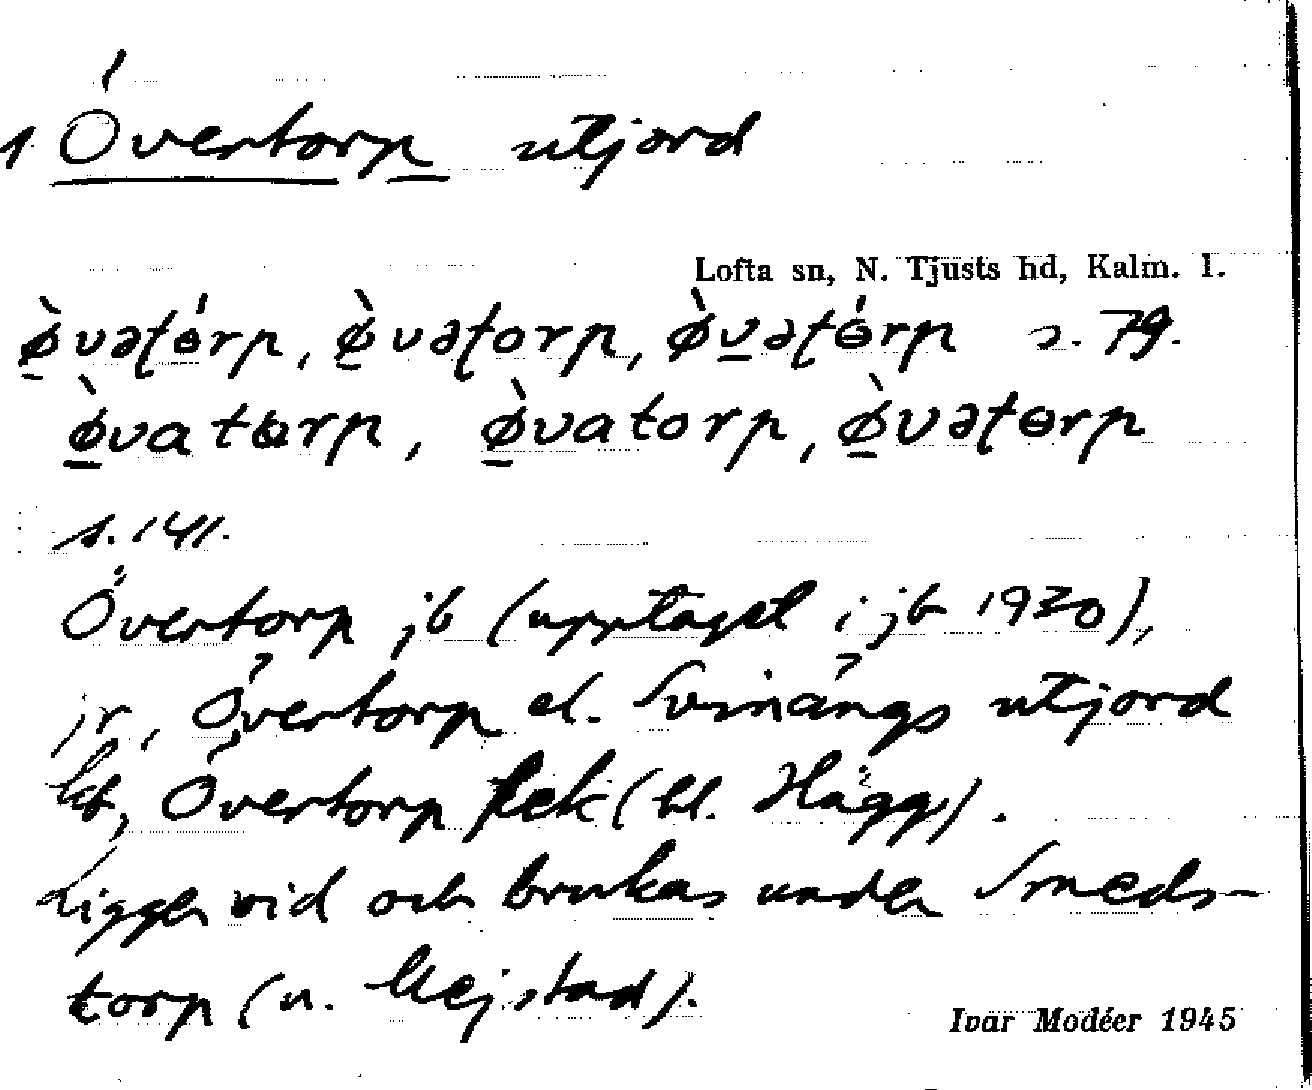 1 Övertorp utjord
Lofta sn, N. Tjusts hd, Kalm. l.
ø̀vəʈɵ́rp, ø̀vəʈorp, ø̀vəʈɵ́rp s. 79.
ø̀vatɵrp, ø̀vatorp, ø̀vəʈɵrp
s. 141.
Övertorp jb (upptaget i jb 1920),
jr, Övertorp el. Svinängs utjord
kb, Övertorp ek (bl. Hägg).
Ligger vid och brukas under Smeds-
torp (u. Mejstad).
Ivar Modéer 1945